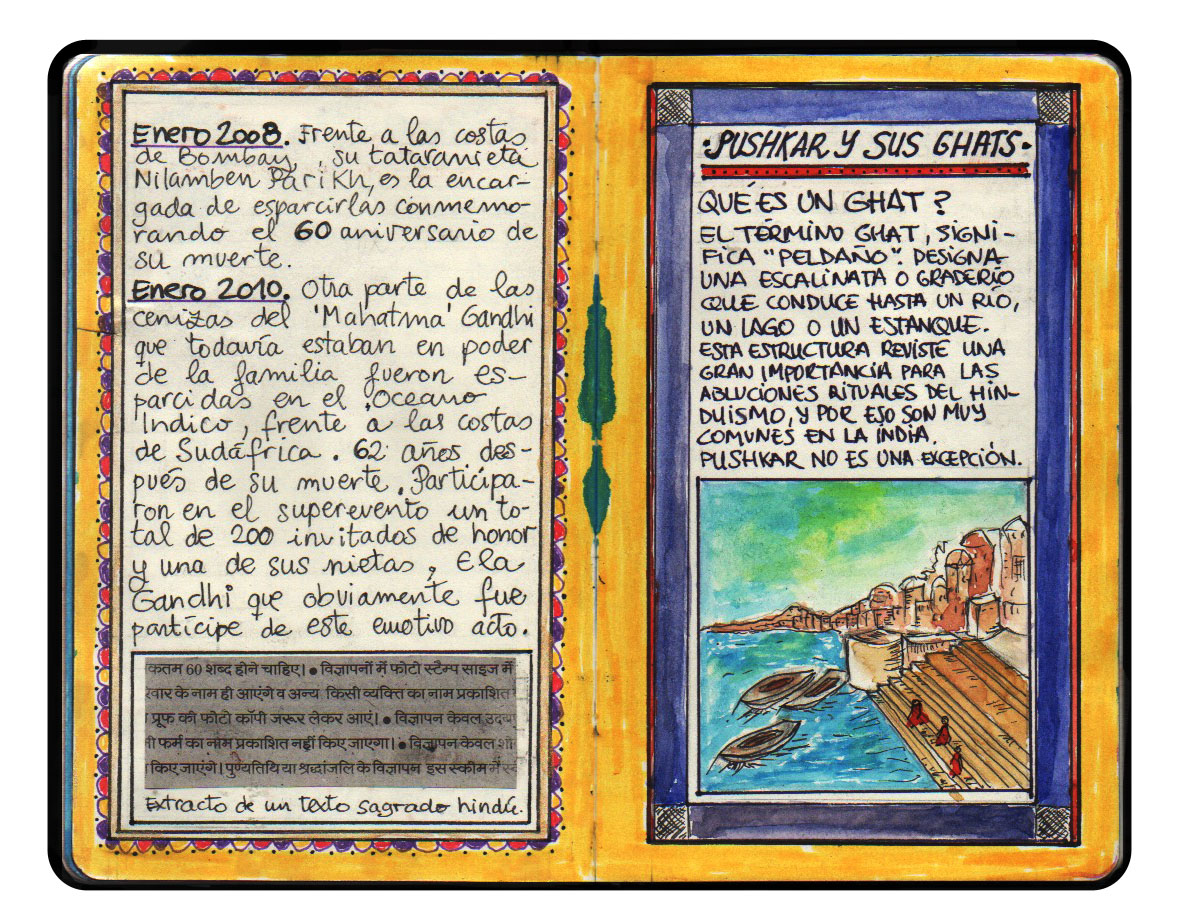 Enero 2008. Frente a las costas
de Bombay, su tataranieta
Nilamben Parikh, es la encar-
gada de esparcirlas conmemo-
rando el 60 aniversario de
su muerte.
Enero 2010. Otra parte de las
cenizas del 'Mahatma' Gandhi
que todavía estaban en poder
de la familia fueron es-
parcidas en el Oceano
Indico, frente a las costas
de Sudáfrica. 62 años des-
pués de su muerte. Participa-
ron en el superevento un to-
tal de 200 invitados de honor
y una de sus nietas, Ela
Gandhi que obviamente fue
partícipe de este emotivo acto.
कतम 60 शब्द होने चाहिए। ● विज्ञापनों में फोटो स्टैम्प साइज में
वार के नाम ही आएंगे व अन्य किसी व्यक्ति का नाम प्रकाशित
प्रूफ की फोटो कॉपी जरूर लेकर आएं। ● विज्ञापन केवल
फर्म का नाम प्रकाशित नहीं किए जाएगा। ● विज्ञापन केवल
किए जाएंगे। पुण्यतिथि या श्रद्धांजलि के विज्ञापन इस स्कीम में
Extracto de un texto sagrado hindú.
·PUSHKAR Y SUS GHATS·
QUÉ ES UN GHAT?
EL TÉRMINO GHAT, SIGNI-
FICA "PELDAÑO". DESIGNA
UNA ESCALINATA O GRADERÍO
QUE CONDUCE HASTA UN RIO,
UN LAGO O UN ESTANQUE.
ESTA ESTRUCTURA REVISTE UNA
GRAN IMPORTANCIA PARA LAS
ABLUCIONES RITUALES DEL HIN-
DUISMO, Y POR ESO SON MUY
COMUNES EN LA INDIA.
PUSHKAR NO ES UNA EXCEPCIÓN.